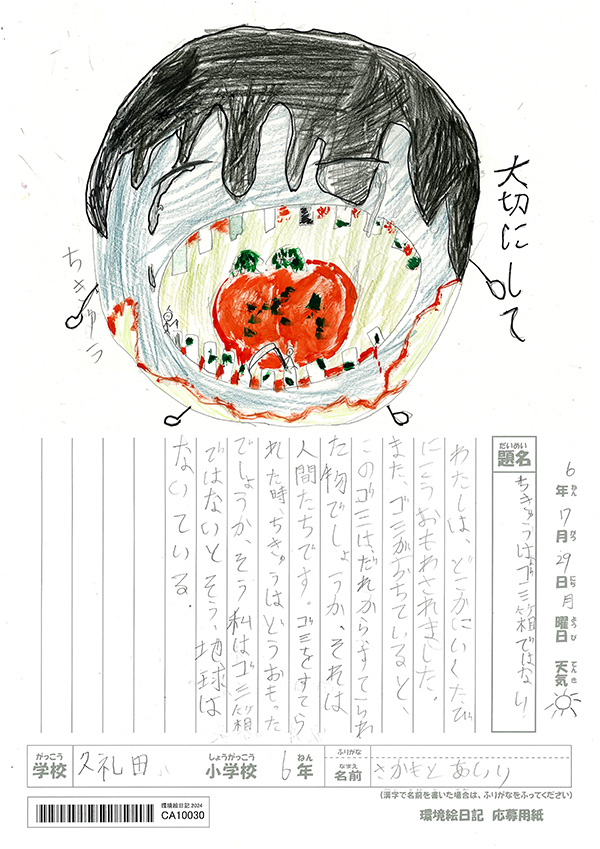 大切にして
ちきゅう
6年7月29日月曜日 天気
ねん がつ にち ようび てんき
だいめい
題名
ちきゅうはゴミ箱ではない!
わたしは、どこかにいくたび
にこうおもわされました。
また、ゴミがおちていると、
このゴミは、だれから、すてられ
た物でしょうか、それは
人間たちです。ゴミをすてら
れた時、ちきゅうはどうおもった
でしょうか、そう私はゴミ箱
ではないとそう、地球は
ないている。
がっこう しょうがっこう ねん ふりがな
学校 久礼田 小学校 6年
なまえ
名前 さかもと
(漢字で名前を書いた場合は、ふりがなをふってください)
環境絵日記 応募用紙
環境絵日記 2024
CA10030